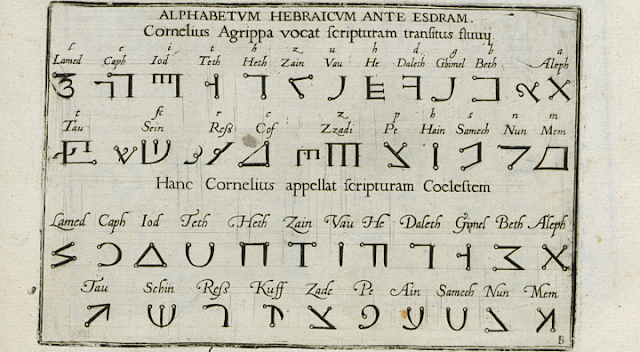 ALPHABETVM HEBRAICVM ANTE ESDRAM.
Cornelius Agrippa vocat ſcripturam tranſitus fluuij
l c i t h z u h d g b a
Lamed Caph Iod Teth Heth Zain Vau He Daleth Ghimel Beth Aleph
t ſc r c z p h s n m
Tau Sein Reſs Cof Zzadi Pe Hain Samech Nun Mem
Hanc Cornelius appellat ſcripturam Coeleſtem
Lamed Caph Iod Teth Heth Zain Vau He Daleth Gimel Beth Aleph
Tau Schin Reſs Kuff Zade Pe Ain Samech Nun Mem
B